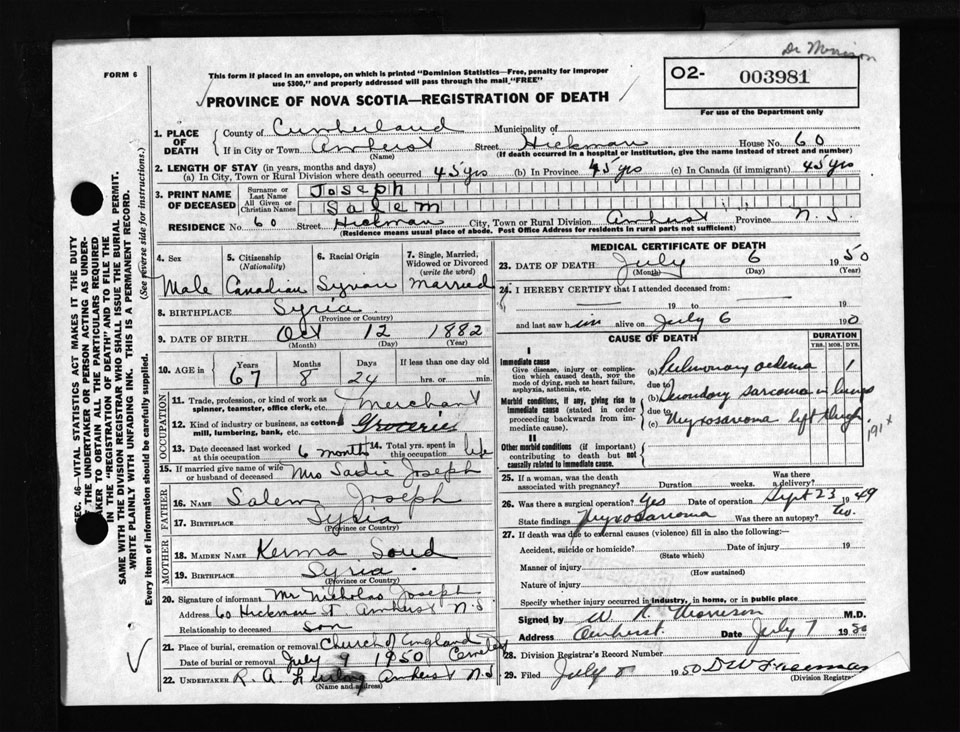 Dr Morrison
FORM 6
This form if placed in an envelope, on which is printed "Dominion Statistics—Free, penalty for improper use $300," and properly addressed will pass through the mail "FREE"
O2- 003981
For use of the Department only
PROVINCE OF NOVA SCOTIA—REGISTRATION OF DEATH
1. PLACE OF DEATH
County of Cumberland Municipality of
If in City or Town Amherst Street Hickman House No. 60
(Name) (If death occurred in a hospital or institution, give the name instead of street and number)
2. LENGTH OF STAY (in years, months and days)
(a) In City, Town or Rural Division where death occurred 45 yrs (b) In Province 45 yrs (c) In Canada (if immigrant) 45 yrs
3. PRINT NAME OF DECEASED
Surname or Last Name Joseph
All Given or Christian Names Salem
RESIDENCE No. 60 Street Hickman City, Town or Rural Division Amherst Province N.S.
(Residence means usual place of abode. Post Office Address for residents in rural parts not sufficient)
4. Sex
Male
5. Citizenship (Nationality)
Canadian
6. Racial Origin
Syrian
7. Single, Married, Widowed or Divorced (write the word)
Married
8. BIRTHPLACE Syria
(Province or Country)
9. DATE OF BIRTH Oct 12 1882
(Month) (Day) (Year)
10. AGE in Years Months Days If less than one day old
67 8 24 hrs. or min.
OCCUPATION
11. Trade, profession, or kind of work as spinner, teamster, office clerk, etc. Merchant
12. Kind of industry or business, as cotton mill, lumbering, bank, etc. Groceries
13. Date deceased last worked at this occupation 6 months
14. Total yrs. spent in this occupation life
15. If married give name of wife or husband of deceased Mrs Sadie Joseph
FATHER
16. NAME Salem Joseph
17. BIRTHPLACE Syria
(Province or Country)
MOTHER
18. MAIDEN NAME
19. BIRTHPLACE Syria
(Province or Country)
20. Signature of informant Mr Nicholas Joseph
Address 60 Hickman St Amherst N.S.
Relationship to deceased Son
21. Place of burial, cremation or removal Church of England Cemetery
Date of burial or removal July 9 1950
22. UNDERTAKER R. A. Amherst N.S
(Name and address)
MEDICAL CERTIFICATE OF DEATH
23. DATE OF DEATH July 6 1950
(Month) (Day) (Year)
24. I HEREBY CERTIFY that I attended deceased from:
19 to 19
and last saw him alive on July 6 190
CAUSE OF DEATH
DURATION
YRS. MOS. DYS.
I
Immediate cause
Give disease, injury or complication which caused death, not the mode of dying, such as heart failure, asphyxia, asthenia, etc.
(a) Pulmonary oedema 1
due to
Morbid conditions, if any, giving rise to immediate cause (stated in order proceeding backwards from immediate cause).
(b) Secondary sarcoma in lungs
due to
(c) Myxosarcoma left thigh
191x
II
Other morbid conditions (if important) contributing to death but not causally related to immediate cause.
25. If a woman, was the death associated with pregnancy? Duration weeks. Was there a delivery?
26. Was there a surgical operation? Yes Date of operation Sept 23 1949
State findings Myxosarcoma Was there an autopsy?
27. If death was due to external causes (violence) fill in also the following:
Accident, suicide or homicide? Date of injury 19
(State which)
Manner of injury
(How sustained)
Nature of injury
Specify whether injury occurred in industry, in home, or in public place
Signed by W. R. Morrison M.D.
Address Amherst. Date July 7 1950
28. Division Registrar's Record Number
29. Filed July 8 1950 D W Freeman
(Division Registrar)
SEC. 46—VITAL STATISTICS ACT MAKES IT THE DUTY OF THE UNDERTAKER OR PERSON ACTING AS UNDERTAKER TO OBTAIN ALL THE PARTICULARS REQUIRED IN THE "REGISTRATION OF DEATH" AND TO FILE THE SAME WITH THE DIVISION REGISTRAR WHO SHALL ISSUE THE BURIAL PERMIT.
WRITE PLAINLY WITH UNFADING INK. THIS IS A PERMANENT RECORD.
Every item of information should be carefully supplied. (See reverse side for instructions.)